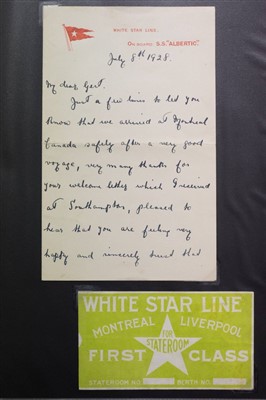 WHITE STAR LINE.
ON BOARD S.S. "ALBERTIC."
July 8th 1928.
My dear Gert.
Just a few lines to let you
know that we arrived at Montreal
Canada safely after a very good
voyage, very many thanks for
your welcome letter which I received
at Southampton, pleased to
hear that you are feeling very
happy and sincerely trust that
WHITE STAR LINE
MONTREAL LIVERPOOL
FOR
STATEROOM
FIRST CLASS
STATEROOM NO. BERTH NO.